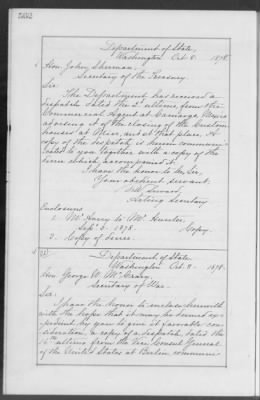 Department of State,
Washington Oct. 8. 1878.
Hon. John Sherman.
Secretary of the Treasury.
Sir:
The Department has received a
despatch dated the 2d ultimo, from the
Commercial Agent at Camargo, Mexico
advising of the closing of the Custom
houses at Mier, and at that place. A
copy of the despatch, is herein communi-
cated to you together with a copy of the
decree which accompanied it.
I have the honor to be, Sir,
Your obedient servant.
Seward,
Acting Secretary
Enclosures
1. Mr to Mr Hunter,
Sept. 2. 1878. Copy.
2. Copy of decree.
Department of State.
Washington Oct. 9. 1878.
Hon. George W. McCrary.
Secretary of War.
Sir:
I have the honor to enclose herewith
with the hope that it may be deemed ex-
pedient by you to give it favorable con-
sideration, a copy of a despatch, dated the
16th ultimo from the Vice Consul General
of the United States at Berlin, commun-